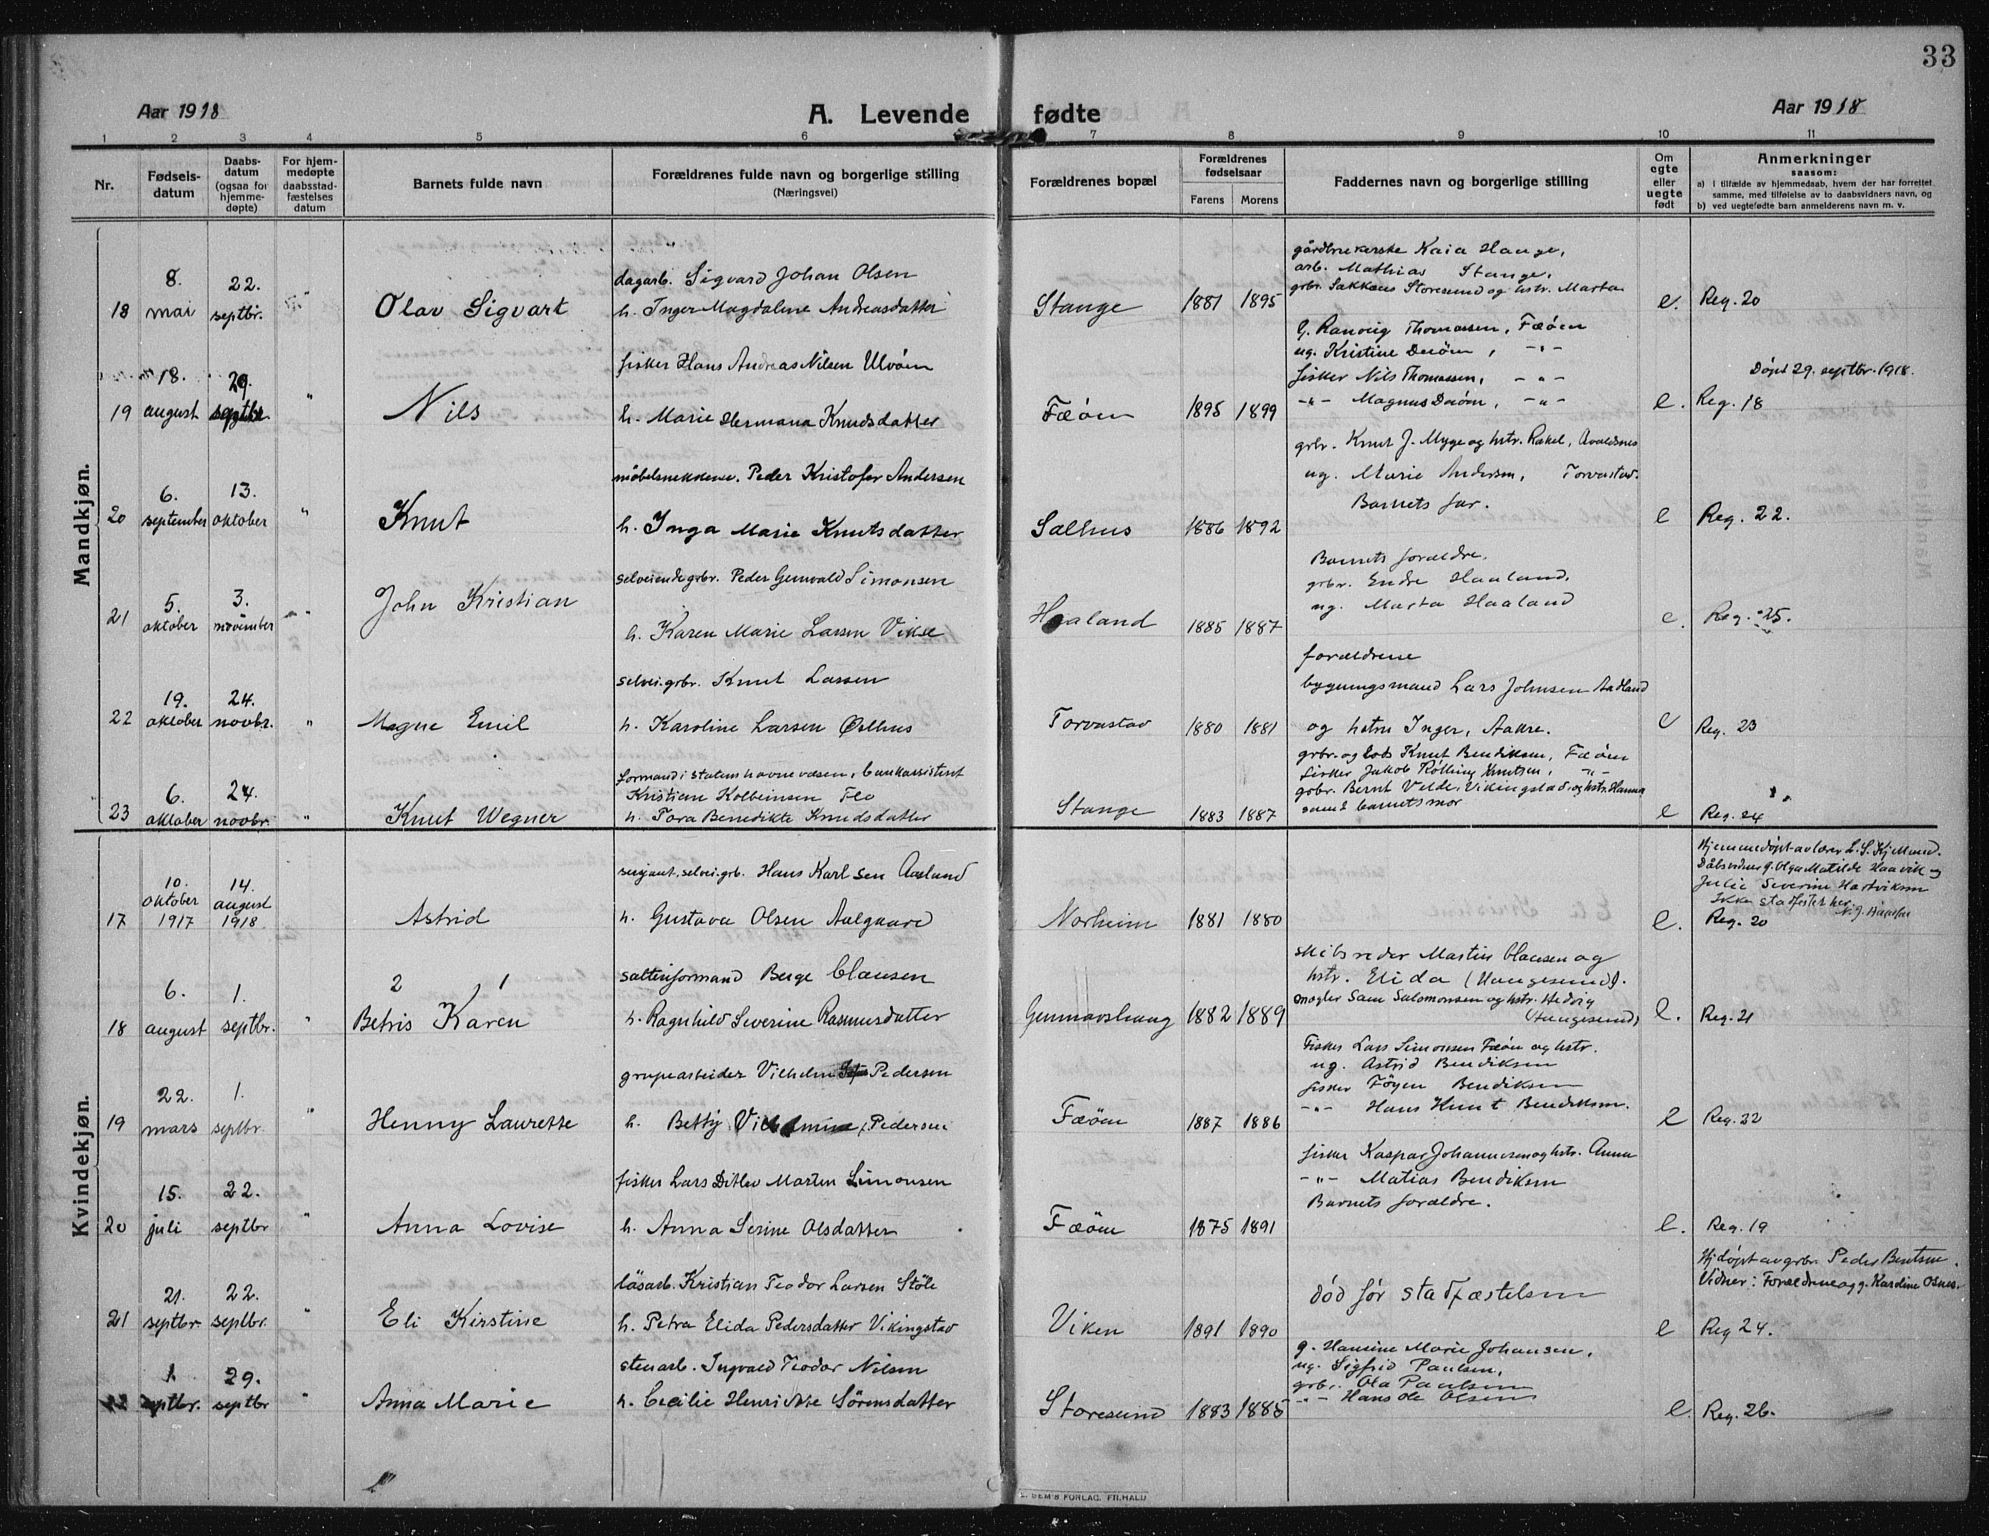 33
Aar 1918
A. Levende fødte
Aar 1918
1 2 3 4 5 6 7 8 9 10 11
Nr.
Fødsels-
datum
Daabs-
datum
(ogsaa for
hjemme-
døpte)
For hjem-
medøpte
daabsstad-
fæstelses
datum
Barnets fulde navn
Forældrenes fulde navn og borgerlige stilling
(Næringsvei)
Forældrenes bopæl
Forældrenes
fødselsaar
Farens Morens
Faddernes navn og borgerlige stilling
Om
egte
eller
uegte
født
Anmerkninger
saasom:
a) i tilfælde av hjemmedaab, hvem der har forrettet
samme, med tilføielse av to daabsvidners navn, og
b) ved uegtefødte barn anmelderens navn m. v.
Mandkjøn.
18
8.
mai
22.
septbr.
"
Olav Sigvart
dagarb. Sigvard Johan Olsen
h. Inger Magdalene Andreasdatter
Stange
1881 1895
Kaia Hauge,
arb. Mathias Stange,
grbr. Storesund og hstr. Marta
e.
Reg. 20
19
18.
august
29.
septbr
"
Nils
fisker Hans Andreas Nilsen Ulvøen
h. Marie Hermana Knudsdatter
Fæøen
1895 1899
G. Ranveig Thomassen, Fæøen
ug. Kristine Derøen, -"-
fisker Nils Thomassen, -"-
-"- Magnus Derøen, -"-
e.
Døpt 29. septbr. 1918.
Reg. 18
20
6.
september
13.
oktober
"
Knut
møbelsnekker. Peder Kristofer Andersen
h. Inga Marie Knutsdatter
Salhus
1886 1892
grbr. Knut J. Myge og hstr. Rakel, Avaldsnes
ug. Marie Andersen, Torvastad.
Barnets far.
e
Reg. 22.
21
5.
oktober
3.
november
"
John Kristian
selveiende grbr. Peder Gunvald Simonsen
h. Karen Marie Larsen Vikse
Haaland
1885 1887
Barnets forældre.
grbr. Endre Haaland.
ug. Marta Haaland
e.
Reg. 25.
22
19.
oktober
24.
novbr.
"
Magne Emil
selvei. grbr. Knut Larsen
h. Karoline Larsen Østhus
Torvastad
1880 1881
forældrene
bygningsmand Lars Johnsen Aadland
og hstru Inger, Aakre.
e
Reg. 23
23
6.
oktober
24.
novbr.
"
Knut Wegner
formand i statens havnevæsen, bankassistent
Kristian Kolbeinsen Flo
h. Tora Benedikte Knudsdatter
Stange
1883 1887
grbr. og lods Knut Bendiksen, Fæøen
fisker Jakob Røthing Knutsen, -"-
grbr. Bernt Velde, Vikingstad og hstr. Hanna
samt barnets mor
e
Reg. 24
Kvindekjøn.
17
10.
oktober
1917
14.
august
1918
Astrid
sergeant, selvei. grb. Hans Karlsen Aasland
h. Gustava Olsen Aalgaard
Norheim
1881 1880
e.
Hjemmedøpt av lærer L. S. Kjellesvd.
Dåbsvidner g. Olga Matilde Haavik og
Julie Severine Hartviksen
Ikke stadfestet her.
Reg. 20
18
6.
august
1.
septbr.
"
2 1
Betris Karen
salteriformand Berge Clausen
h. Ragnhild Severine Rasmusdatter
Gunnarshaug
1882 1889
skibsreder Martin Clausen og
hstr. Elida (Haugesund).
mægler Sam Salomonsen og hstr. Hedvig
(Haugesund)
e.
Reg. 21
19
22.
mars
1.
septbr.
"
Henny Laurette
grupearbeider Vilhelm Pedersen
h. Betty Vilhelmine, Pedersen
Fæøen
1887 1886
Fisker Lars Simonsen Fæøen og hstr.
ug. Astrid Bendiksen
fisker Føyen Bendiksen
-"- Hans Knut Bendiksen.
e
Reg. 22
20
15.
juli
22.
septbr
"
Anna Lovise
fisker Lars Ditlev Marten Simonsen
h. Anna Serine Olsdatter
Fæøen
1875 1891
fisker Kaspar Johannesen og hstr. Anna
-"- Matias Bendiksen
Barnets forældre.
e.
Reg. 19
21
21.
septbr.
22.
septbr.
"
Eli Kirstine
løsarb. Kristian Teodor Larsen Støle
h. Petra Elida Pedersdatter Vikingstad
Viken
1891 1890
død før stadfæstelsen
e
Hj.døpt av grbr. Peder Bentsen.
Vidner: Forældrene og g. Karoline Osnes.
Reg 24.
22
1
septbr.
29.
septbr
"
Anna Marie
stenarb. Ingvald Teodor Nilsen
h. Cecilie Henrikke Sørensdatter
Storesund
1883 1885
g. Hansine Marie Johansen,
ug. Sigfrid Paulsen,
grbr. Ola Paulsen
-"- Hans Ole Olsen
e.
Reg. 26.
SEM'S FORLAG, FR.HALD